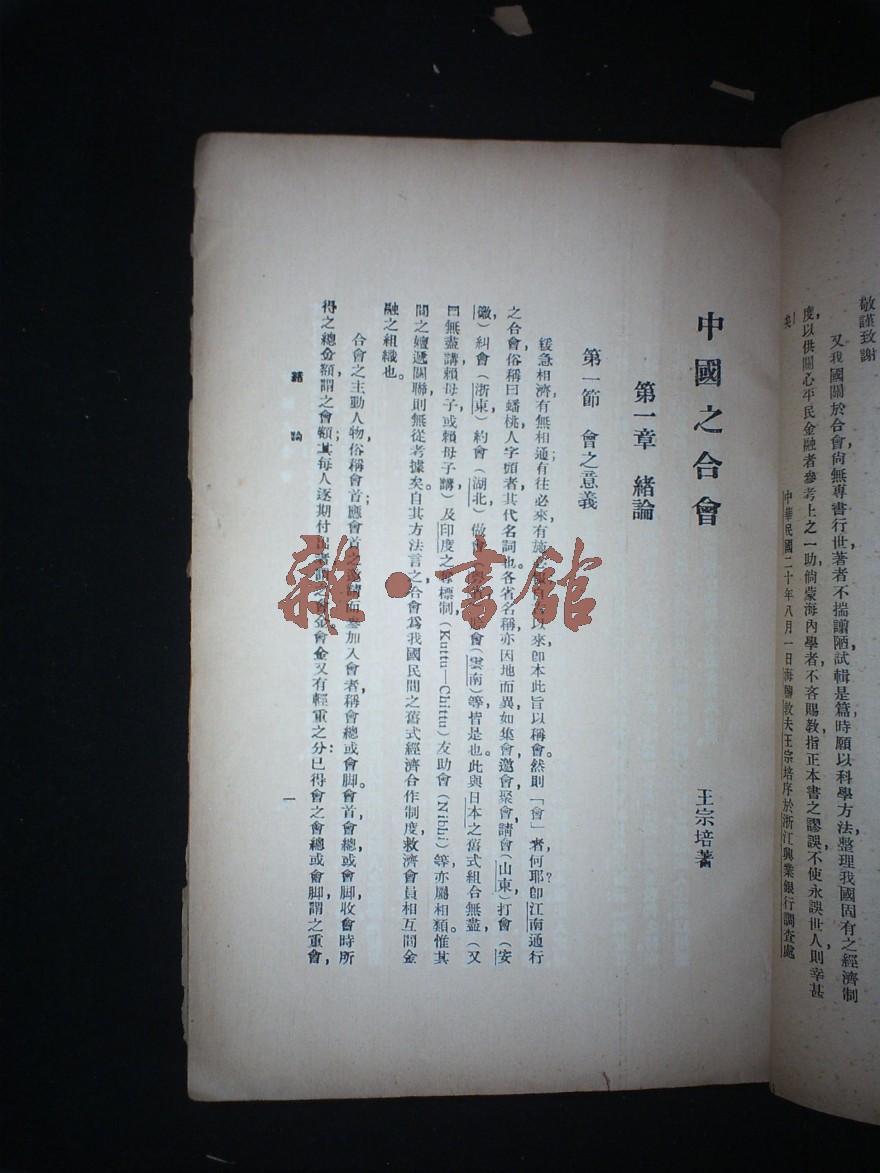 敬謹致謝
又我國關於合會，尙無專書行世，著者不揣譾陋，試輯是篇，時願以科學方法，整理我國固有之經濟制
度，以供關心平民金融者參考上之一助，倘蒙海內學者，不吝賜教，指正本書之謬誤，不使永誤世人，則幸甚
矣！
中華民國二十年八月一日海鹽敦夫王宗培序於浙江興業銀行調查處
中國之合會
王宗培著
第一章　緒論
第一節　會之意義
緩急相濟，有無相通；有往必來，有施以來，卽本此旨以稱會。然則「會」者何耶？卽江南通行
之合會，俗稱曰蟠桃，人字頭者其代名詞也。各省名稱，亦因地而異，如集會，邀會，聚會，請會，（山東）打會，（安
徽）糾會（浙東）約會（湖北）做會會（雲南）等皆是也。此與日本之舊式組合無盡，（又
曰無盡講賴母子或賴母子講）及印度之標制，（Kuttu—Chittu）友助會（Nibhi）等，亦屬相類。惟其
間之嬗遞關聯，則無從考據矣。自其方法言之，合會爲我國民間之舊式經濟合作制度，救濟會員相互間金
融之組織也。
合會之主動人物，俗稱會首；應會首之請而參加入會者，稱會總或會脚。會首，會總或會脚，收會時所
得之總金額，謂之會額；其每人逐期付出者，謂之會金。會金又有輕重之分：已得會之會總或會脚，謂之重會，
緒論
一
雜·書館